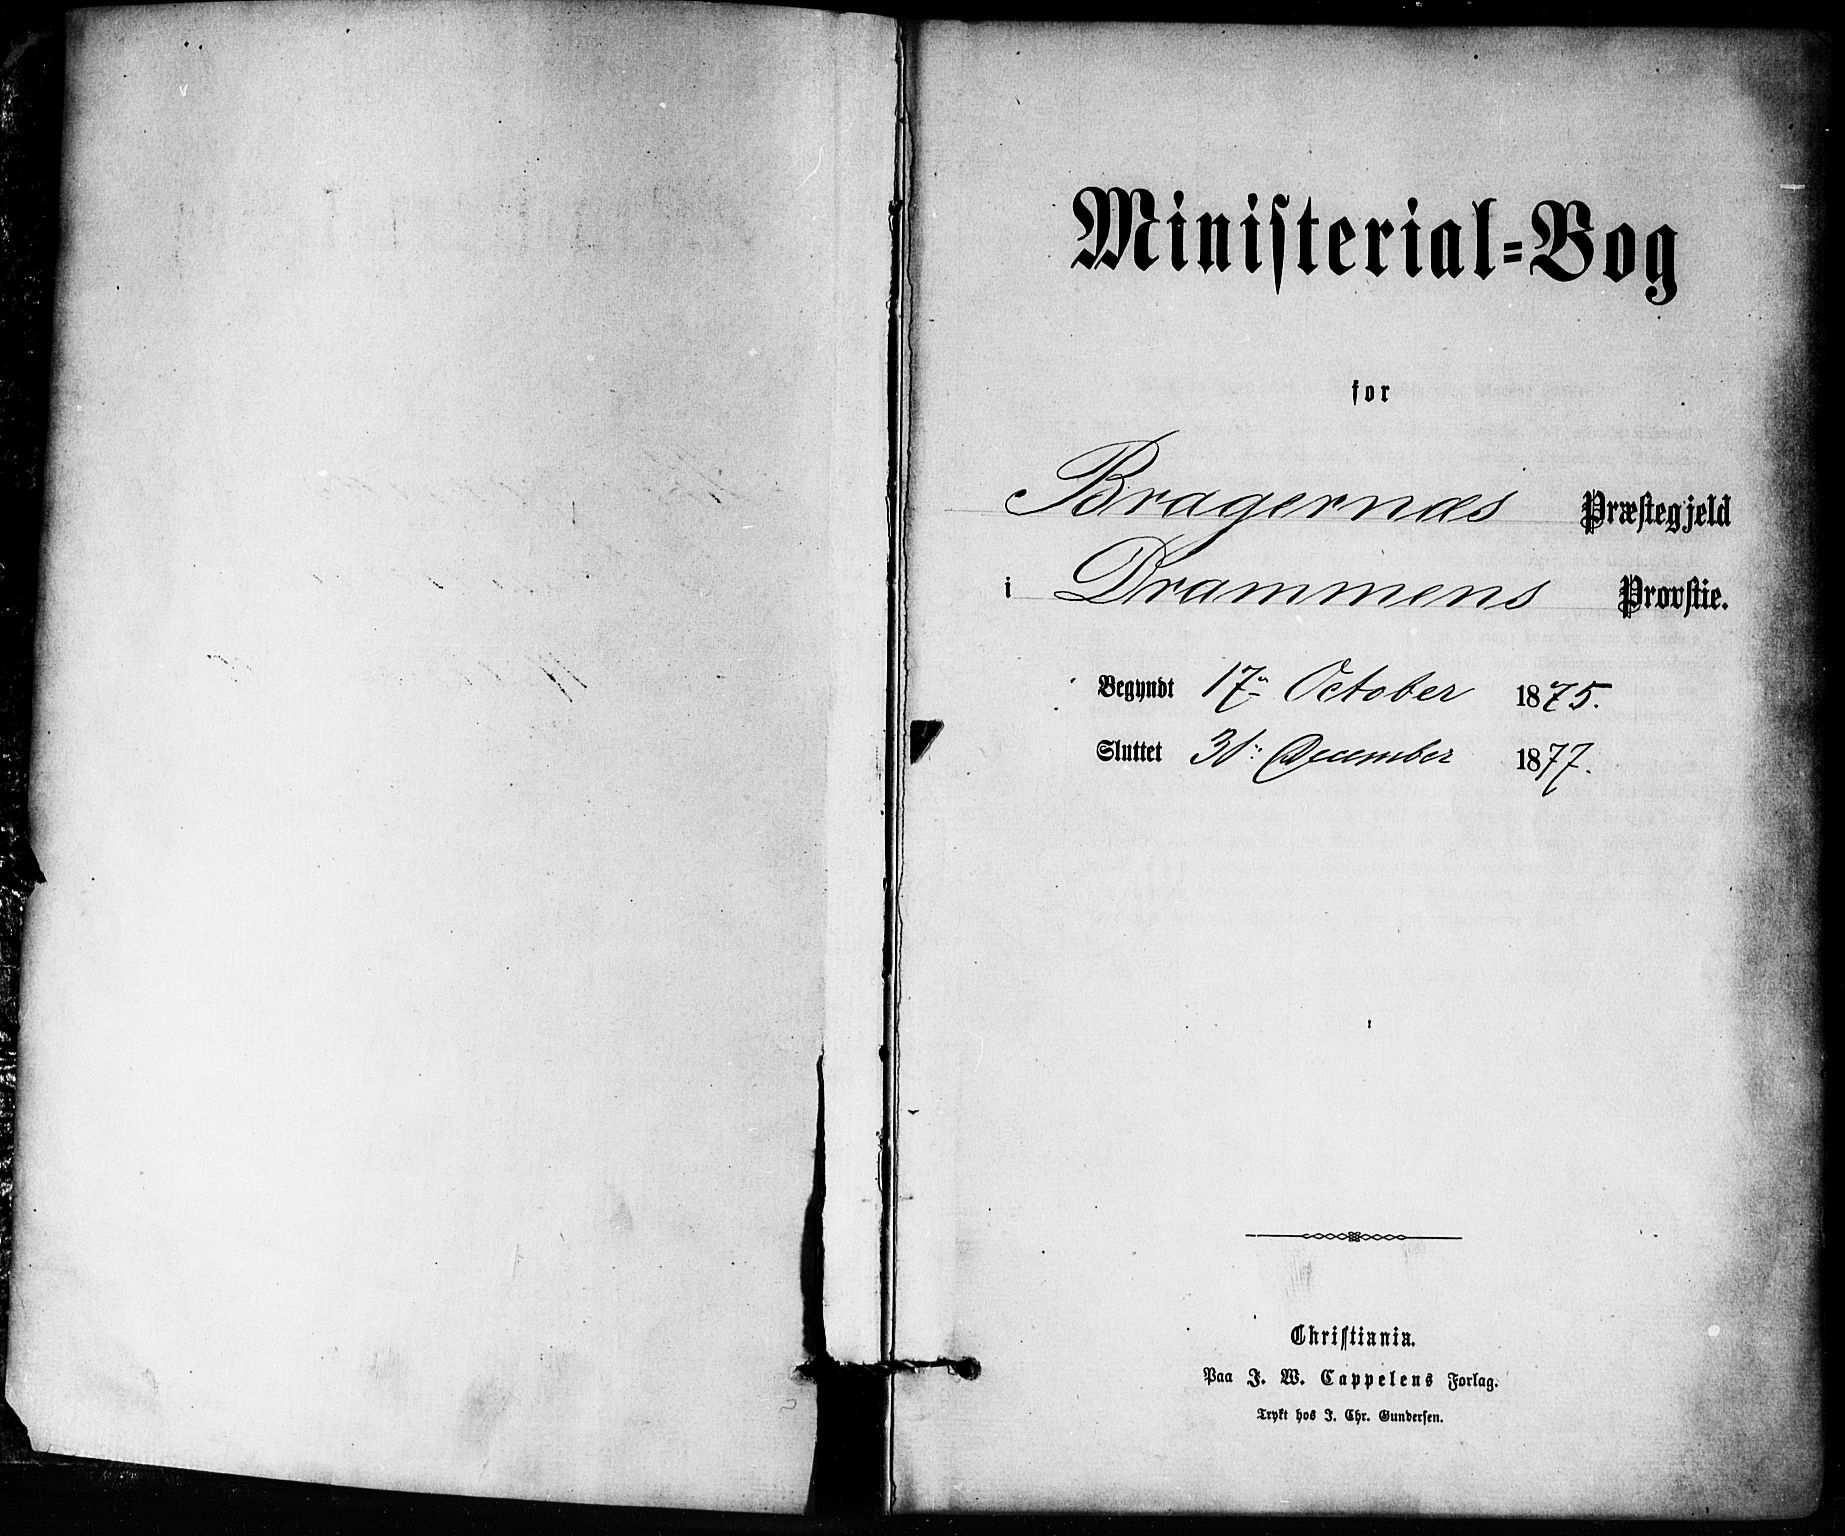 Ministerial-Bog
for
Bragernæs Præstegjeld
i Drammens Provstie.
Begyndt 17de October 1875.
Sluttet 31. December 1877.
Christiania.
Paa J. W. Cappelens Forlag.
Trykt hos J. Chr. Gundersen.